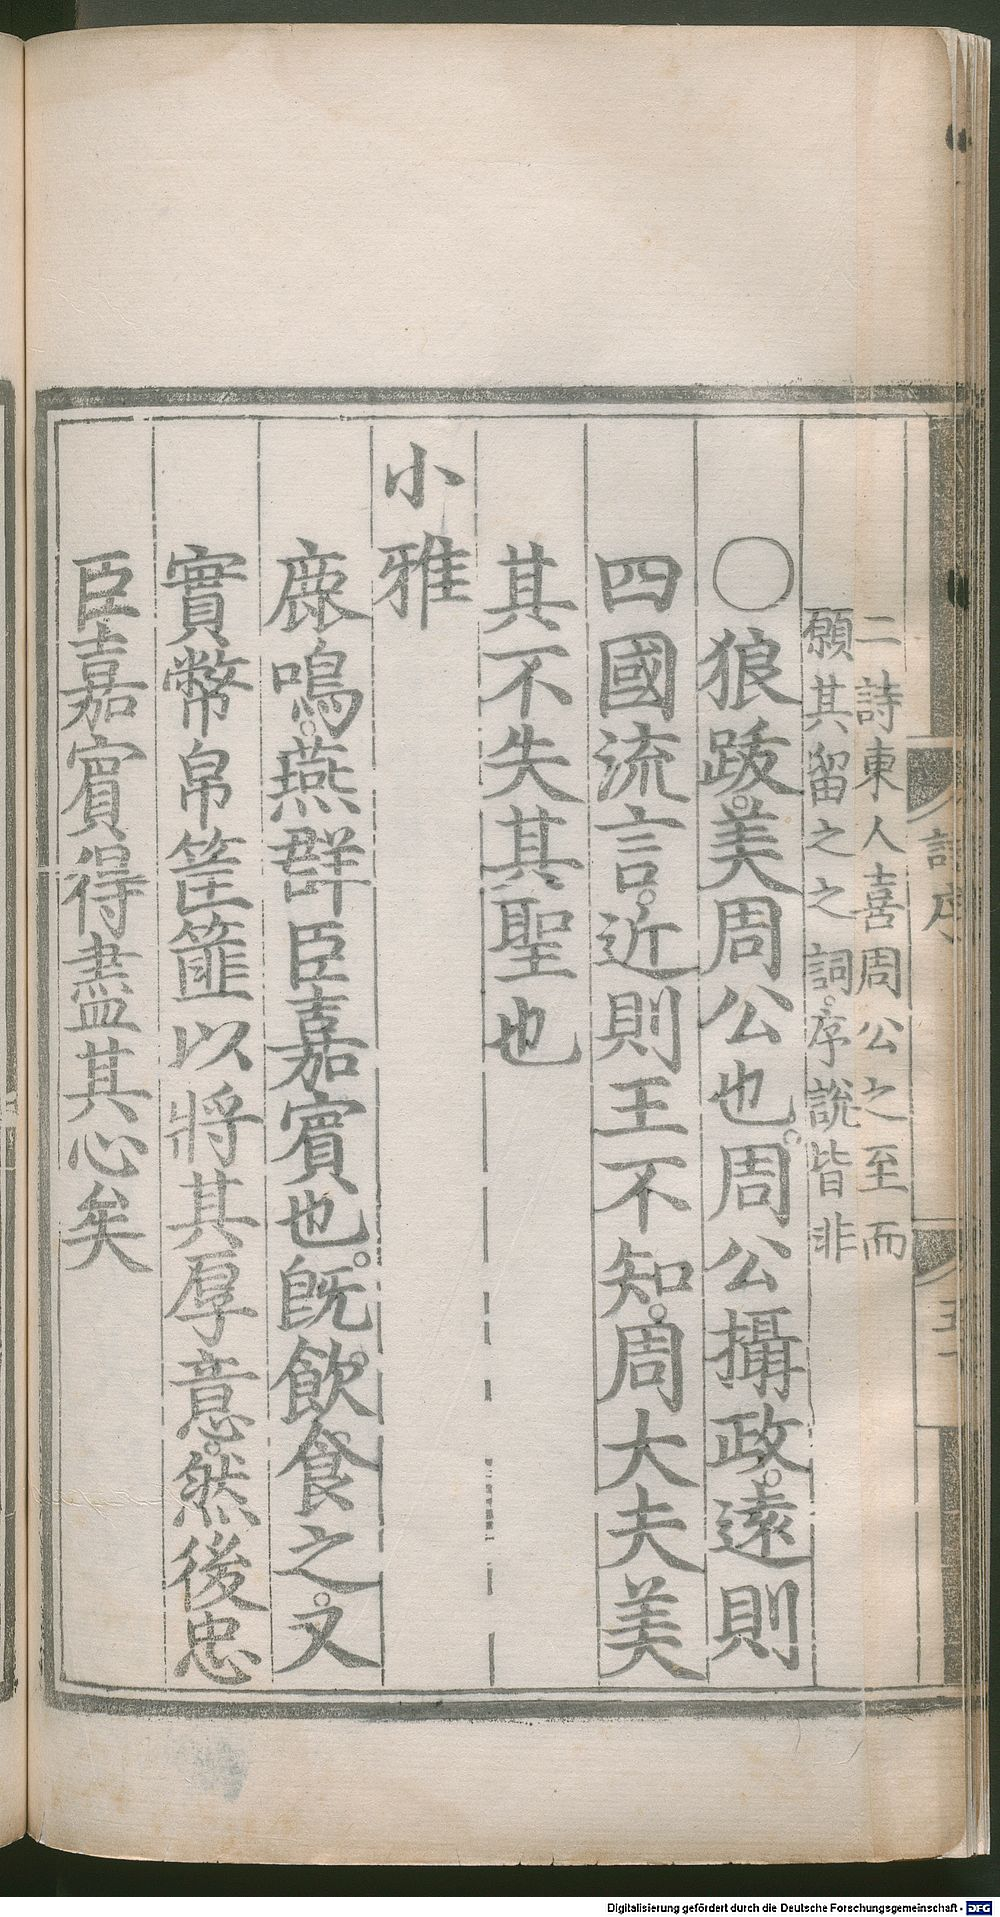 二詩東人喜周公之至而
願其留之之詞。序說皆非
○狼跋。美周公也。周公攝政。遠則
四國流言。近則王不知。周大夫美
其不失其聖也
小雅
鹿鳴。燕群臣嘉賓也。旣飮食之。又
實幣帛筐篚以將其厚意。然後忠
臣嘉賓得盡其心矣
Digitalisierung gefördert durch die Deutsche Forschungsgemeinschaft - DFG